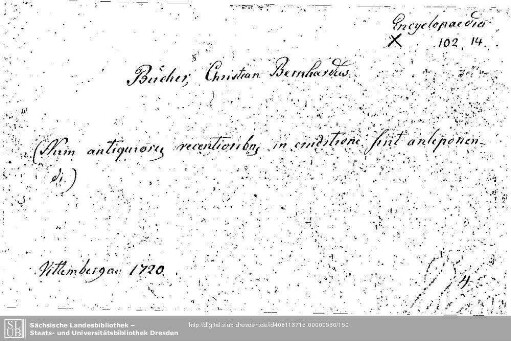 Encyclopaedia
X 102 14.
Bücher, Christian Bernhardus.
(Num antiquiores recentioribus in eruditione sint anteponen-
di.)
Vittembergae 1720.
4.
Sächsische Landesbibliothek –
Staats- und Universitätsbibliothek Dresden